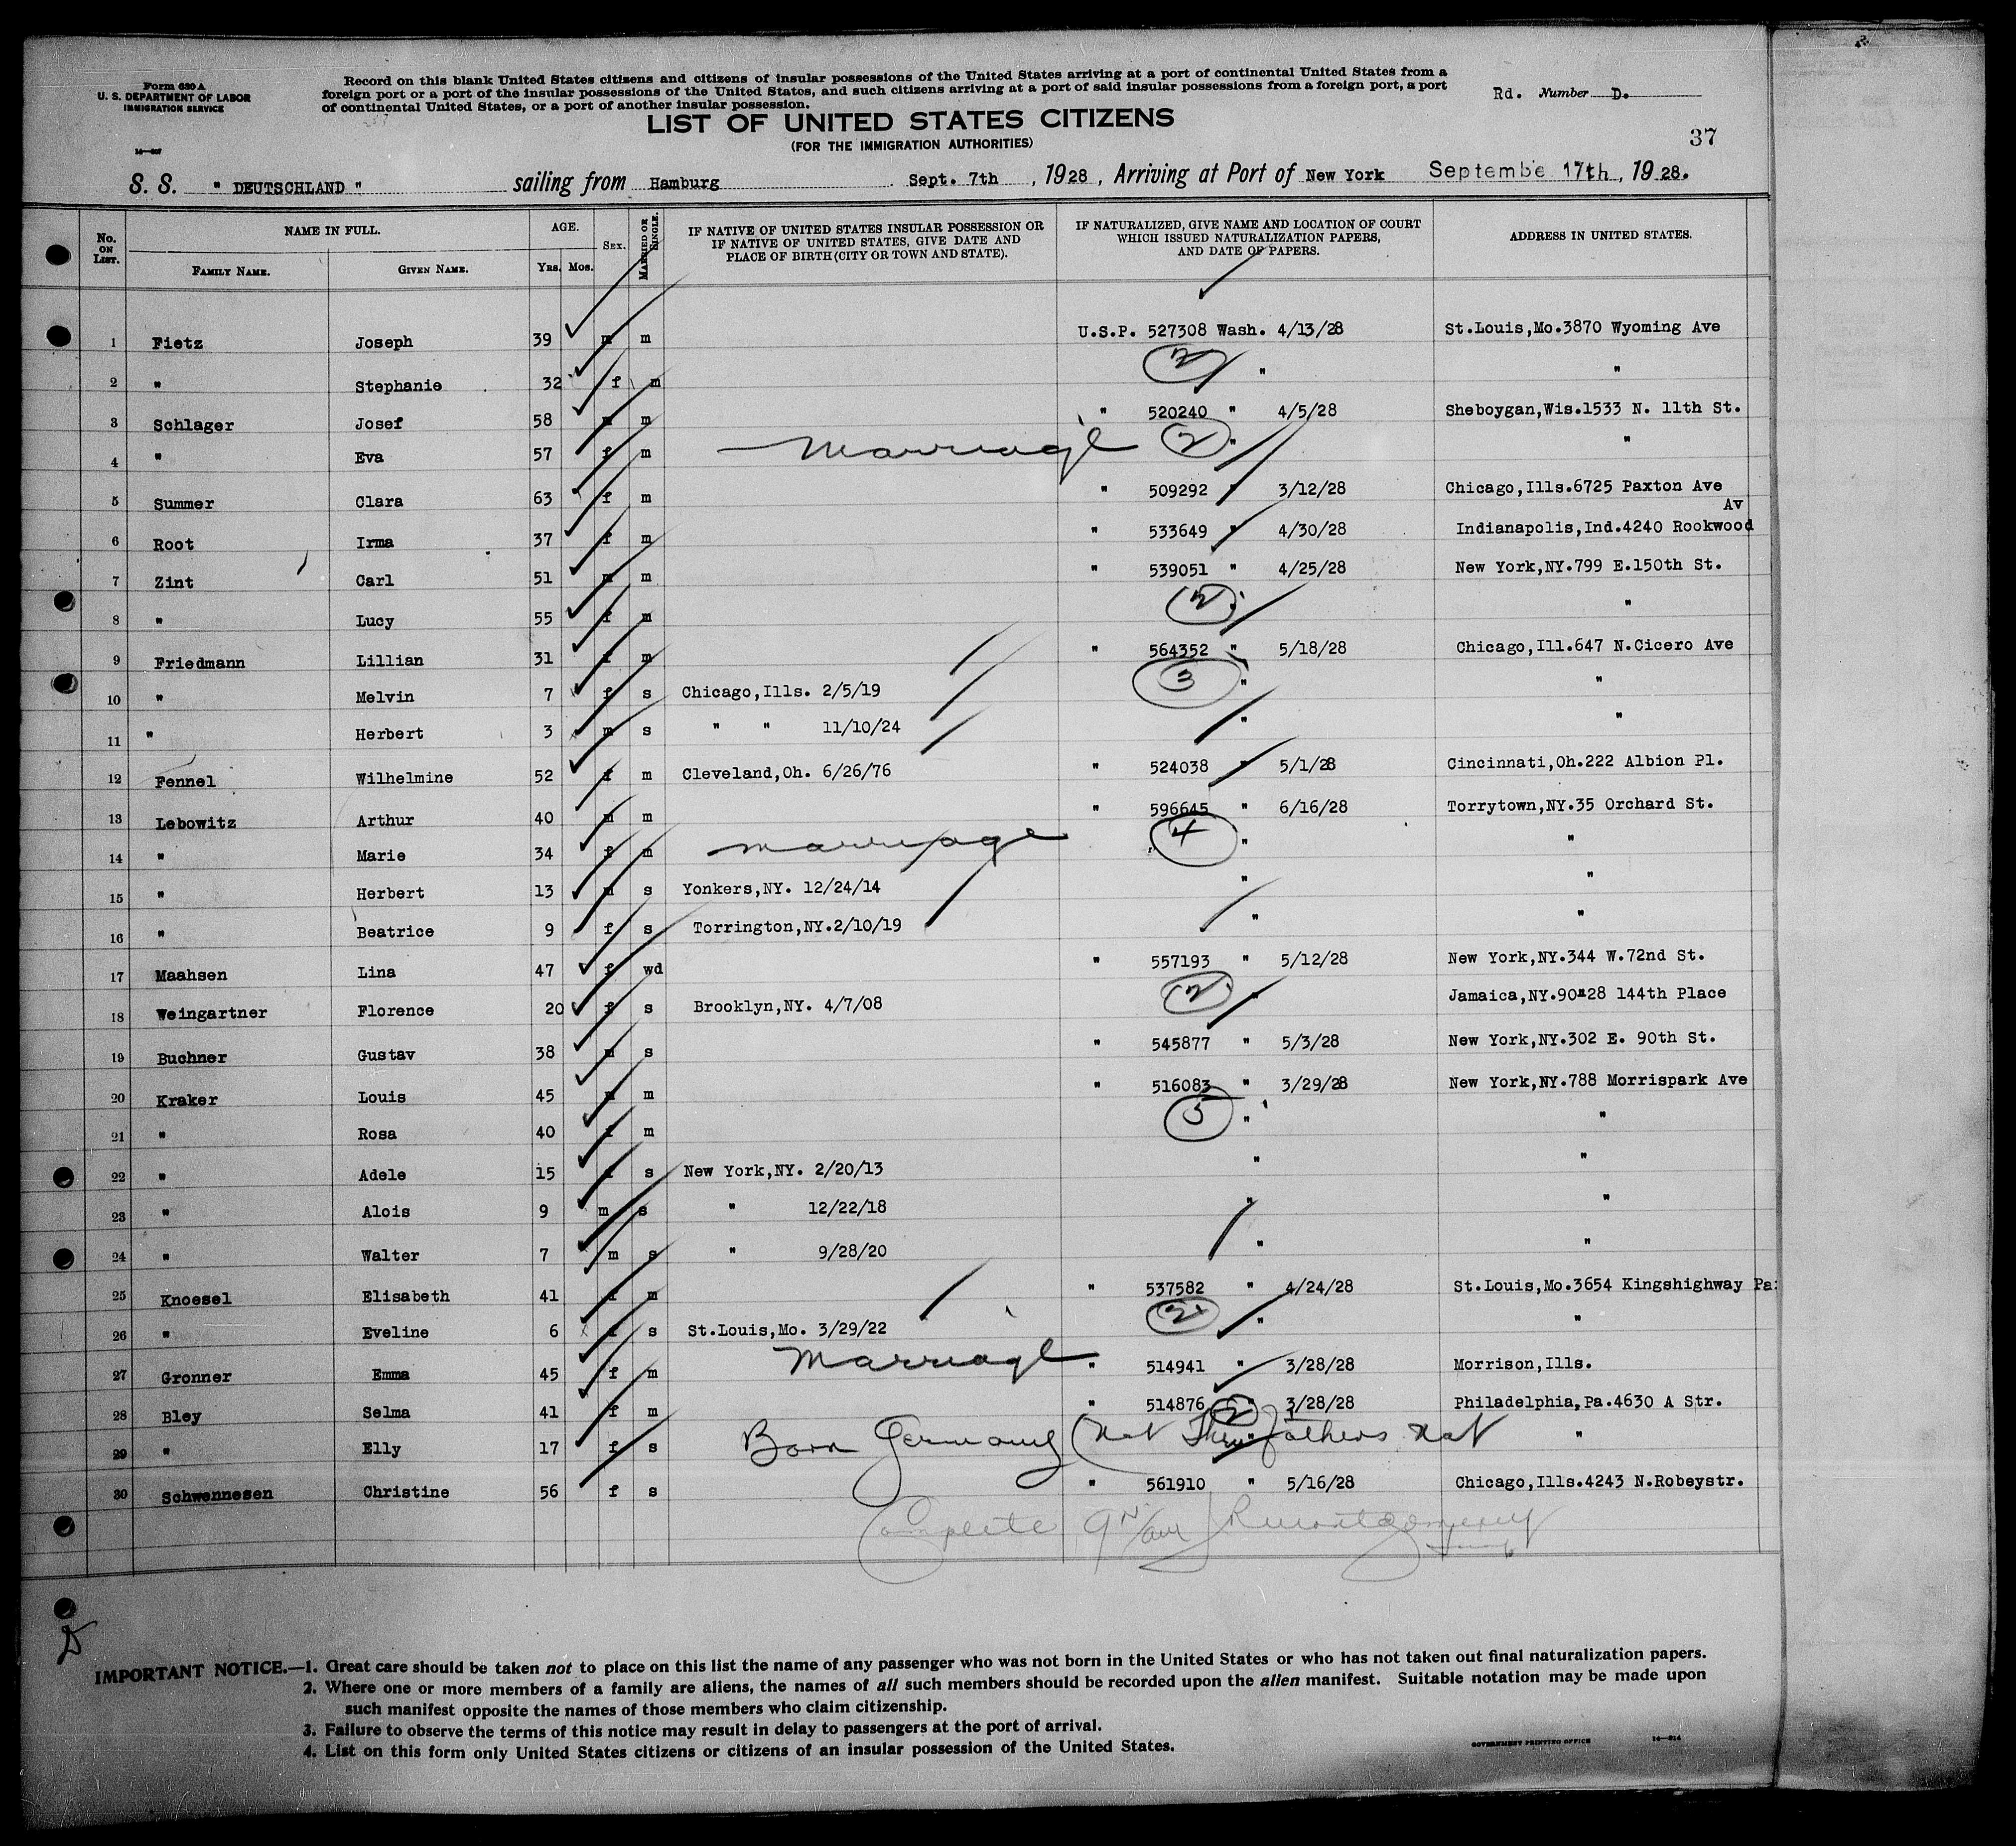 Form 630 A
U. S. DEPARTMENT OF LABOR
IMMIGRATION SERVICE
Record on this blank United States citizens and citizens of insular possessions of the United States arriving at a port of continental United States from a
foreign port or a port of the insular possessions of the United States, and such citizens arriving at a port of said insular possessions from a foreign port, a port
of continental United States, or a port of another insular possession.
Rd. Number D.
LIST OF UNITED STATES CITIZENS
(FOR THE IMMIGRATION AUTHORITIES)
37
S. S. " DEUTSCHLAND " sailing from Hamburg Sept. 7th , 1928, Arriving at Port of New York Septembe 17th, 1928.
No. ON LIST. NAME IN FULL. AGE. SEX. MARRIED OR SINGLE. IF NATIVE OF UNITED STATES INSULAR POSSESSION OR IF NATIVE OF UNITED STATES, GIVE DATE AND PLACE OF BIRTH (CITY OR TOWN AND STATE). IF NATURALIZED, GIVE NAME AND LOCATION OF COURT WHICH ISSUED NATURALIZATION PAPERS, AND DATE OF PAPERS. ADDRESS IN UNITED STATES.
FAMILY NAME. GIVEN NAME. YRS. MOS.
1 Fietz Joseph 39 m m U.S.P. 527308 Wash. 4/13/28 St.Louis,Mo.3870 Wyoming Ave
2 " Stephanie 32 f m 2 " "
3 Schlager Josef 58 m m " 520240 " 4/5/28 Sheboygan,Wis.1533 N. 11th St.
4 " Eva 57 f m Marriage 2 " "
5 Summer Clara 63 f m " 509292 " 3/12/28 Chicago,Ills.6725 Paxton Ave
Av
6 Root Irma 37 f m " 533649 " 4/30/28 Indianapolis,Ind.4240 Rookwood
7 Zint Carl 51 m m " 539051 " 4/25/28 New York,NY.799 E.150th St.
8 " Lucy 55 f m 2 " "
9 Friedmann Lillian 31 f m " 564352 " 5/18/28 Chicago,Ill.647 N.Cicero Ave
10 " Melvin 7 f s Chicago,Ills. 2/5/19 3 " "
11 " Herbert 3 m s " " 11/10/24 " "
12 Fennel Wilhelmine 52 f m Cleveland,Oh. 6/26/76 " 524038 " 5/1/28 Cincinnati,Oh.222 Albion Pl.
13 Lebowitz Arthur 40 m m " 596645 " 6/16/28 Torrytown,NY.35 Orchard St.
14 " Marie 34 f m marriage 4 " "
15 " Herbert 13 m s Yonkers,NY. 12/24/14 " "
16 " Beatrice 9 f s Torrington,NY.2/10/19 " "
17 Maahsen Lina 47 f wd " 557193 " 5/12/28 New York,NY.344 W.72nd St.
18 Weingartner Florence 20 f s Brooklyn,NY. 4/7/08 2 " Jamaica,NY.90-28 144th Place
19 Buchner Gustav 38 m s " 545877 " 5/3/28 New York,NY.302 E. 90th St.
20 Kraker Louis 45 m m " 516083 " 3/29/28 New York,NY.788 Morrispark Ave
21 " Rosa 40 f m 5 " "
22 " Adele 15 f s New York,NY. 2/20/13 " "
23 " Alois 9 m s " 12/22/18 " "
24 " Walter 7 m s " 9/28/20 " "
25 Knoesel Elisabeth 41 f m " 537582 " 4/24/28 St.Louis,Mo.3654 Kingshighway Pa
26 " Eveline 6 f s St.Louis,Mo. 3/29/22 2 " "
27 Gronner Emma 45 f m Marriage " 514941 " 3/28/28 Morrison,Ills.
28 Bley Selma 41 f m " 514876 2 " 3/28/28 Philadelphia,Pa.4630 A Str.
29 " Elly 17 f s Born Germany (Nat Thru fathers Nat "
30 Schwennesen Christine 56 f s " 561910 " 5/16/28 Chicago,Ills.4243 N.Robeystr.
Complete
IMPORTANT NOTICE.—1. Great care should be taken not to place on this list the name of any passenger who was not born in the United States or who has not taken out final naturalization papers.
2. Where one or more members of a family are aliens, the names of all such members should be recorded upon the alien manifest. Suitable notation may be made upon
such manifest opposite the names of those members who claim citizenship.
3. Failure to observe the terms of this notice may result in delay to passengers at the port of arrival.
4. List on this form only United States citizens or citizens of an insular possession of the United States.
GOVERNMENT PRINTING OFFICE